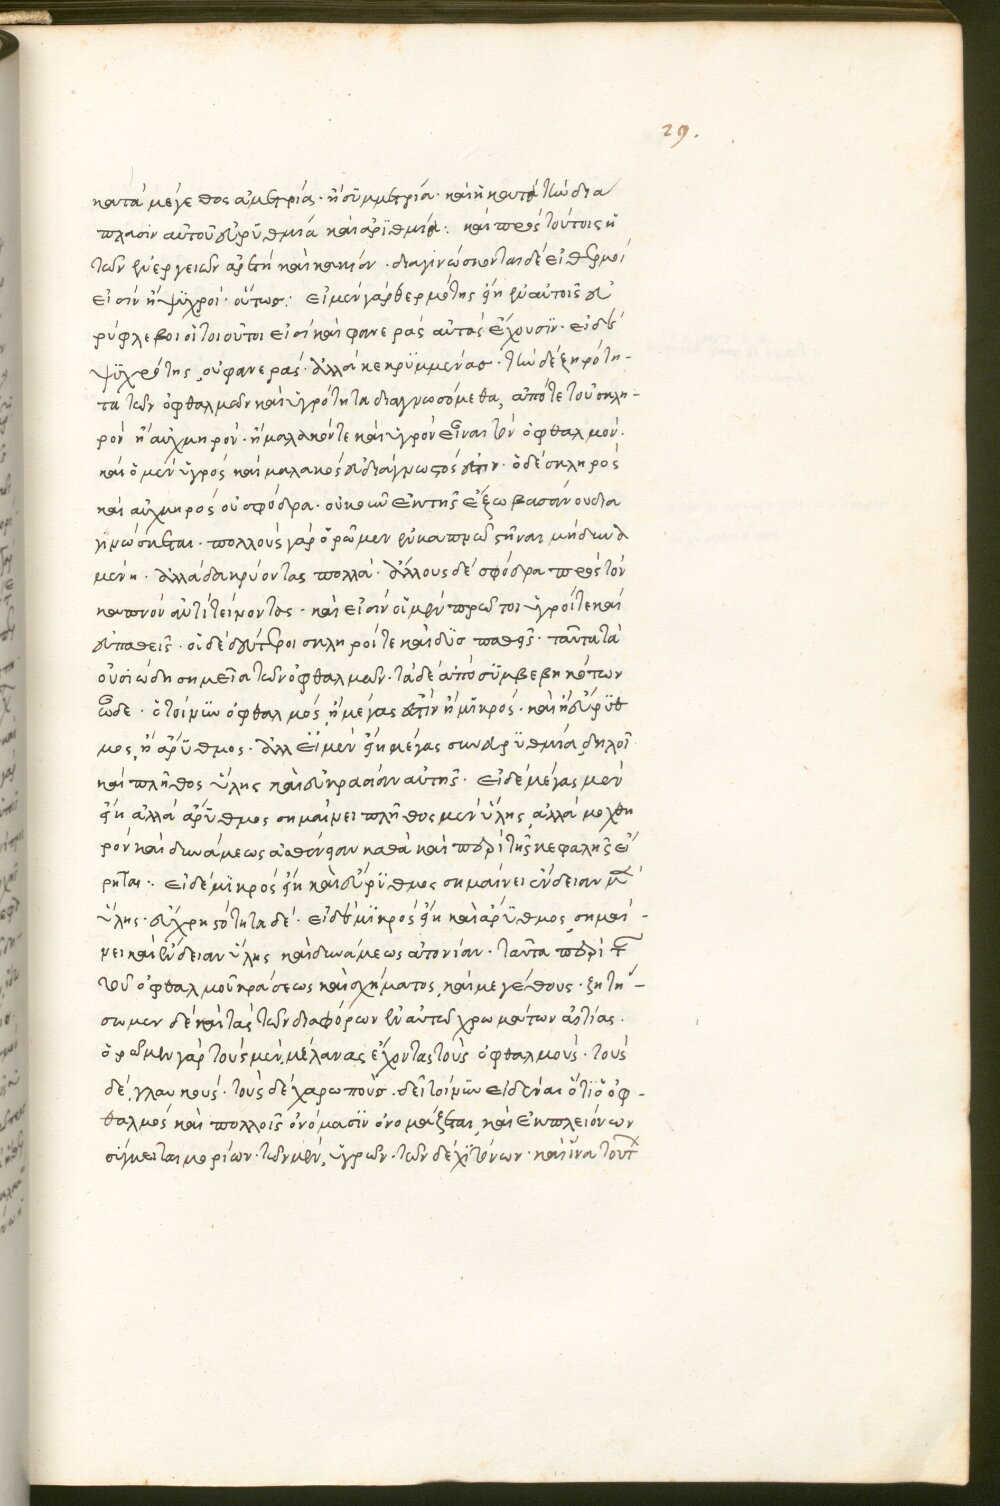 29.
κατὰ μέγεθος ἀμετρίας· ἢ συμμετρία· καὶ ἡ κατὰ τὴν δια
πλασιν αὐτοῦ εὐρϋθμία καὶ ἀρϊθμία: καὶ πρὸς τούτοις ἡ
τῶν ἐνεργειῶν ἀρετὴ καὶ κακίαν· διαγινώσκονται δὲ εἰ θερμοί
εἰσίν ἢ ψϋχροί· οὕτως: εἰ μὲν γὰρ θερμότης ἐστὶ ἐν αὐτοῖς εὐ
ρύφλεβοι οἱ τοιοῦτοι εἰσὶ καὶ φανερὰς αὐτὰς ἔχουσϊν· εἰ δὲ
ψϋχρότης, οὐ φανεράς· ἀλλὰ κεκρϋμμένας· τὴν δὲ ξηρότη-
τα τῶν ὀφθαλμῶν καὶ ὑγρότητα διαγνωσόμεθα, ἀπό τε τοῦ σκλη-
ρὸν ἢ αὐχμηρὸν· ἢ μαλακόν τε καὶ ὑγρὸν εἶναι τὸν ὀφθαλμόν·
καὶ ὁ μὲν ὑγρός καὶ μαλακὸς εὐδιάγνωστός ἐστιν· ὁ δὲ σκληρός
καὶ αὐχμηρός οὐ σφόδρα· οὐκοῦν ἐκ τῆς ἔξωβασάνου δια
γνώσηται· πολλοὺς γὰρ ὁρῶμεν ἐν καπνῶ στῆναι μὴ δυνα
μένη· ἀλλὰ δακρύοντας πολλά· ἄλλους δὲ σφόδρα πρὸς τὸν
καπνὸν ἀντιτείνοντας· καὶ εἰσίν οἱ μὲν πρῶτοι ὑγροί τε καὶ
εὐπαθεῖς· οἱ δὲ δεύτεροι σκληροί τε καὶ δϋσπαθεῖς· ταῦτα τὰ
οὐσιώδη σημεῖα τῶν ὀφθαλμῶν· τὰ δὲ ἀπὸ σϋμβεβηκότων
ὧδε· ὁ τοίνϋν ὀφθαλμός, ἢ μέγας ἐστὶν ἢ μϊκρός· καὶ ἢ εὔρϋθ
μος, ἢ ἄρϋθμος· ἀλλ εἰ μὲν ἐστὶ μέγας σὺν εὐρϋθμία, δηλοῖ
καὶ πλῆθος ὕλης καὶ εὐκρασίαν αὐτῆς· εἰ δὲ μέγας μὲν
ἐστὶ ἀλλὰ ἄρϋθμος σημαίνει πλῆθος μὲν ὕλης, ἀλλὰ μοχθη
ρὸν καὶ δυνάμεως καθὰ καὶ περὶ τῆς κεφαλῆς εἴ
ρηται: εἰ δὲ μϊκρός ἐστὶ καὶ εὔρϋθμος σημαίνει ἔνδειαν μὲν
ὕλης· εὐχρηστότητα δέ· εἰ δὲ μϊκρός ἐστὶ καὶ ἄρϋθμος, σημαί-
νει καὶ ἔνδειαν ὕλης καὶ δυνάμεως ἀτονίαν· ταῦτα περὶ τῆς
τοῦ ὀφθαλμοῦ κράσεως καὶ σχήματος, καὶ μεγέθους· ζητή-
σωμεν δὲ καὶ τὰς τῶν διαφόρων ἐν αὐτῶ χρωμάτων αἰτίας·
ὁρῶμεν γὰρ τοὺς μὲν, μέλανας ἔχοντας τοὺς ὀφθαλμούς· τοὺς
δὲ, γλαυκούς· τοὺς δὲ χαροποὺς· δεῖ τοίνϋν εἰδέναι ὅτι ὁ ὀφ-
θαλμὸς καὶ πολλοῖς ὀνόμασϊν ὀνομάζεται, καὶ ἐκ πλειόνων
σύγκειται μορίων· τῶν μὲν, ὑγρῶν· τῶν δὲ χϊτόνων· καὶ ἵνα τούτ